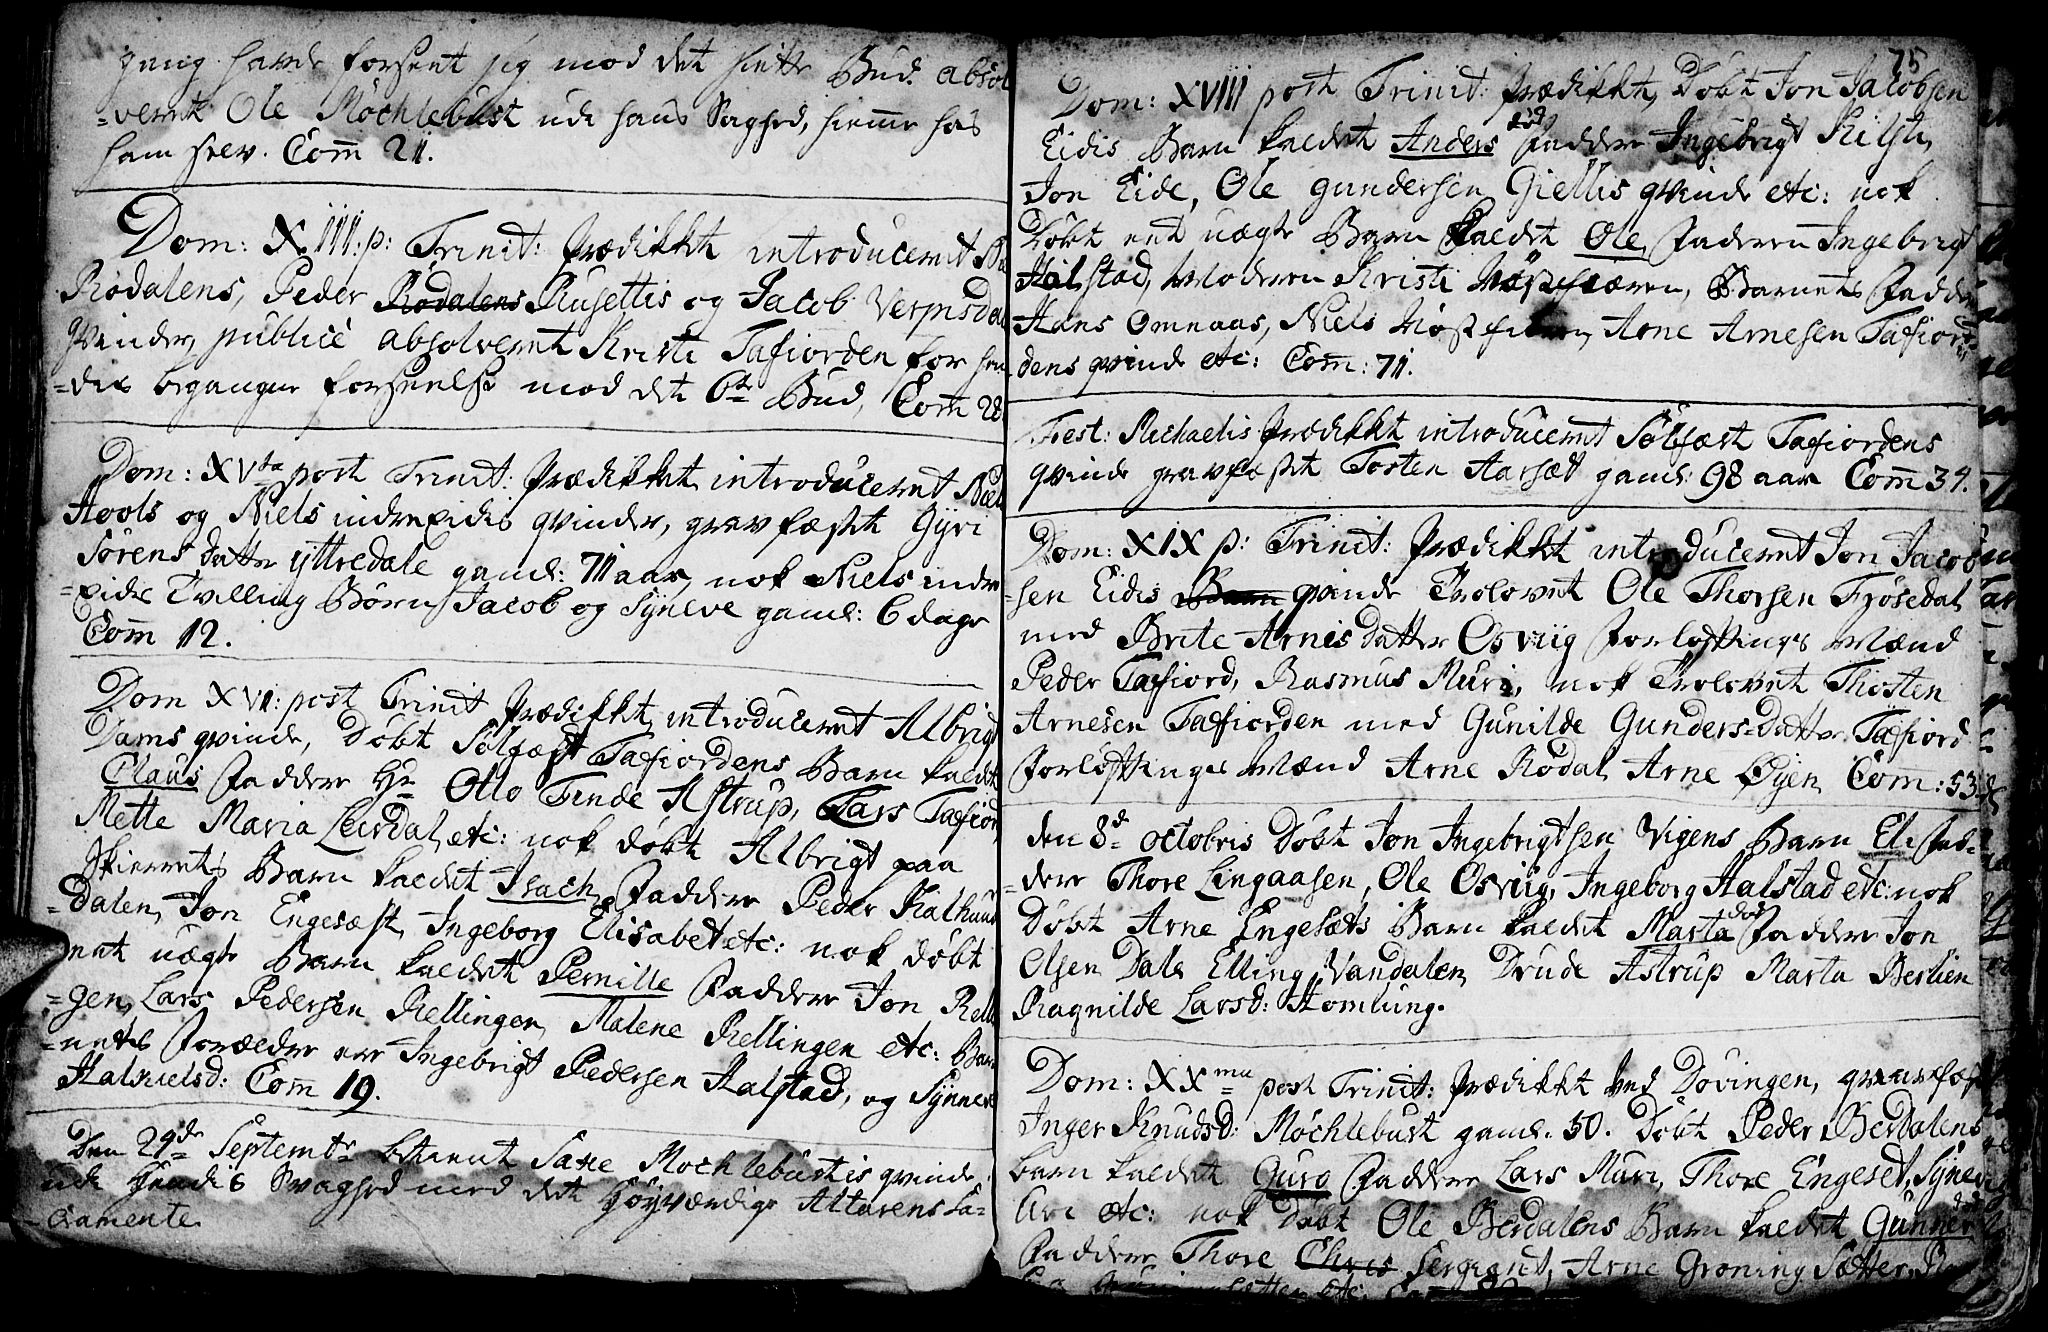 gang hafde forseet sig mod det siette Bud. absol
=veret Ole Möchlebust udi hans Svaghed, hiemme hos
ham selv. Com̄ 21.
Dom: XIII: p: Trinit: Prædikket introduceret
Rødalens, Peder Rødalens Rusettis og Jacob Verpesdal
qvinder, publicè absolveret Kristi Tafiorden for hen
=dis begangne forseelse mod det 6te Bud, Com̄ 28
Dom: XVta post Trinit: Prædikket, introduceret Niels
Hools og Niels indreeidis qvinder, gravfæstet Gyri
Sørens datter yttredale gaml: 71 aar, nok Niels indre
=eides Tvilling Børn Jacob og Syneve gaml: 6 dage
Com̄ 12.
Dom XVI: post Trinit Prædikket, introduceret Albrigt
Dams qvinde, Døbt Sølfæst Tafiordens Barn kaldet
Claus Faddere Hr Otto Finde Astrup, Lars Tafiord,
Mette Maria Leirdal, etc: nok døbt Albrigt paa
Skierrets Barn kaldet Isach, Faddere Peder Kalhus
=Dalen, Jon Engesæst, Ingeborg Elisabet etc: nok døbt
eet uægte Barn kaldet Pernille Faddere Jon Rell
=gen, Lars Pedersen Rellingen, Malene Rellingen etc: Bar
=nets Forældre er Ingebrigt Pedersen Halstad, og Synneve
Halnielsd: Com̄ 19.
Den 29de Septembr betient Saxe Mochlebustis qvinde
udi Hendis Svaghed med det Høyværdige Altarens Sa=
=cramente.
75
Dom: XVIII post Trinit: Prædikket, Døbt Jon Jacobsen
Eidis Barn kaldet Anders død Faddere Ingebrigt Kilsti,
Jon Eide, Ole Gundersen Giellis qvinde etc: nok
Døbt eet uægte Barn kaldet Ole, Faderen Ingebrigt
Halstad, Moderen Kristi Barnets Faddere
Hans Omnaas, Niels Arne Arnesen Tafiord
dens qvinde etc: Com̄: 71.
Fest: Michaelis Prædikket introduceret Sølfæst Tafiordens
qvinde gravfæstet Tosten Aarsæt gaml: 98 aar Com̄ 34.
Dom: XIX p: Trinit: Prædikket introduceret Jon Jacob
=sen Eidis Barn qvinde Trolovet Ole Thorsen Frøsedal
med Brite Arnis Datter Osviig Forlofttings Mænd
Peder Tafiord, Rasmus Muri, nok Trolovet Thosten
Arnesen Tafiorden med Gunilde Gunders=datter Tafiord
Forløftings Mænd Arne Rødal Arne Øyen Com̄: 53.
den 8de octobris Døbt Jon Ingebrigtsen Vigens Barn Eli Fad=
=dere Thore Lingaasen, Ole Osviig, Ingeborg Halstad etc: nok
Døbt Arne Engesæts Barn kaldet Marta død Faddere Jon
Olsen Dale Elling Vandalen, Drude Astrup Marta Berlien
Ragnilde Larsd: Homlung.
Dom: XXma post Trinit: Prædikket ved Døvingen, gravfæst
Inger Knudsd: Möchlebust gaml. 50. Døbt Peder Berdalens
barn kaldet Guro Faddere Lars Muri, Thore Engeset, Syneve
Uri etc: nok Døbt Ole Berdalens Barn kaldet Gunner død
Faddere Thore Chris Sergiant, Arne Groningsætter,